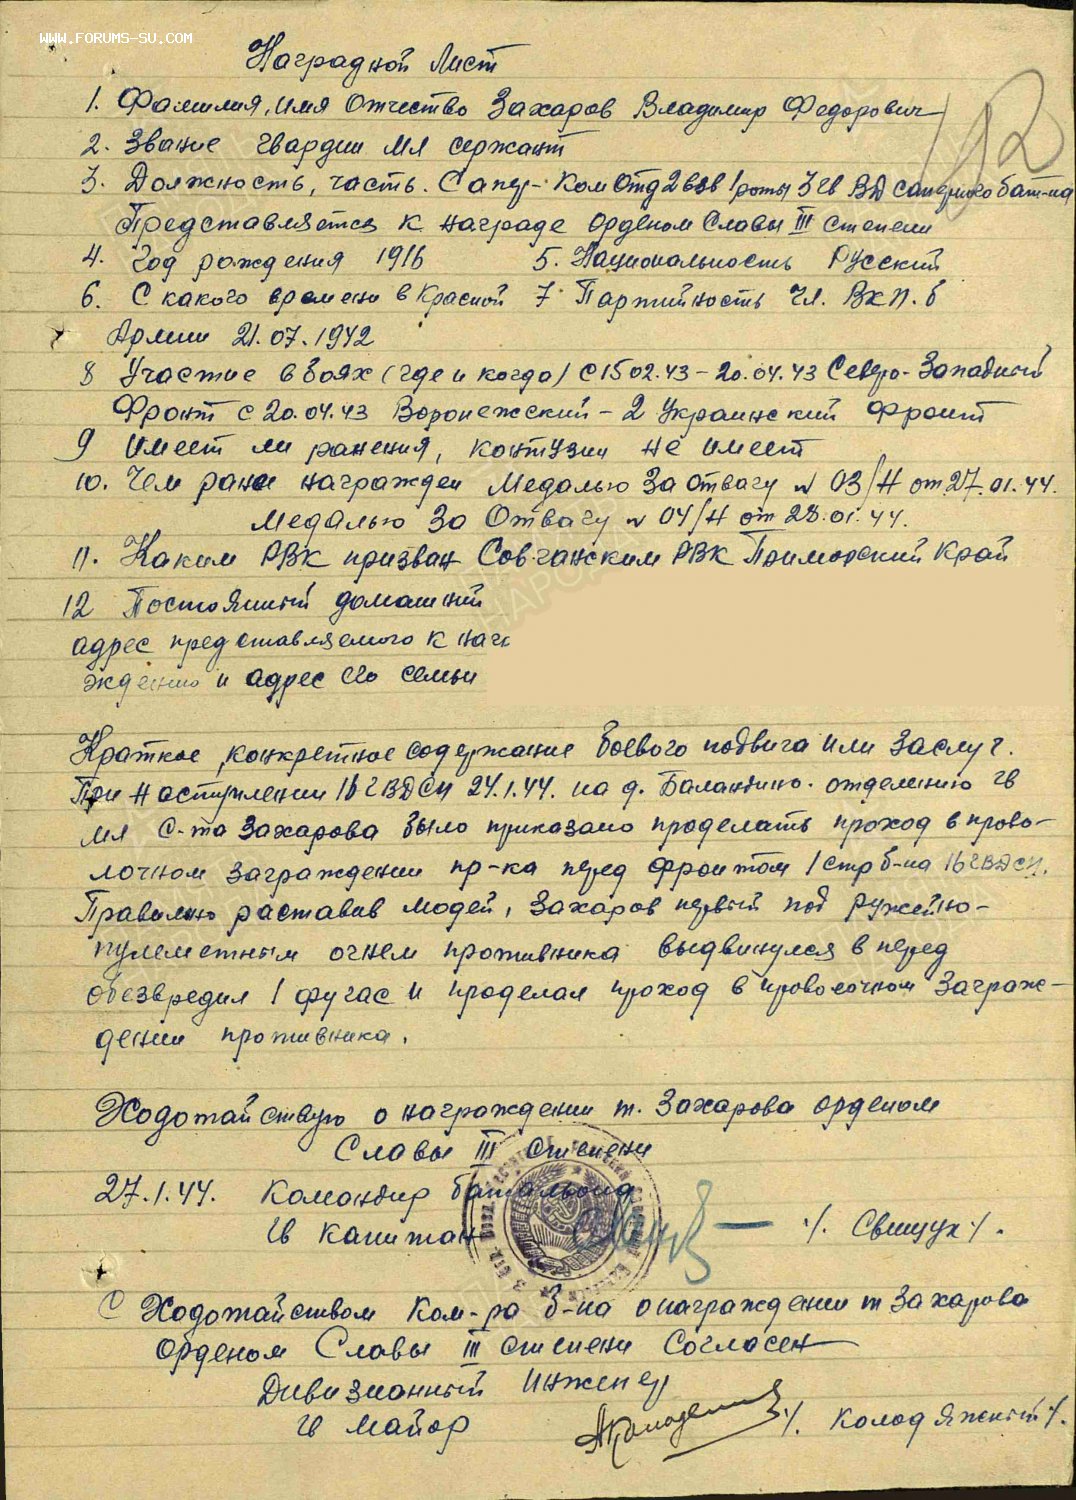 WWW.FORUMS-SU.COM
Наградной Лист
192
1. Фамилия, имя Отчество Захаров Владимир Федорович
2. Звание гвардии мл сержант
3. Должность, часть. Сапер-Ком Отд 2 взв 1 роты 3 гв ВД саперного бат-на
Представляется к награде орденом Славы III степени
4. Год рождения 1916 5. Национальность Русский
6. С какого времени в Красной 7 Партийность Чл. ВКП.б
Армии 21.07.1942
8 Участие в боях (где и когда) с 15 02.43 - 20.04.43 Северо-Западный
Фронт с 20.04.43 Воронежский - 2 Украинский фронт
9 Имеет ли ранения, контузии не имеет
10. Чем ранее награжден Медалью За отвагу № 03/Н от 27.01.44.
Медалью За Отвагу № 04/Н от 28.01.44.
11. Каким РВК призван Сов-ганским РВК Приморский Край
12 Постоянный домашний
адрес представляемого к наг
ждению и адрес его семьи
Краткое, конкретное содержание боевого подвига или заслуг.
При наступлении 16 ГВДСП 24.1.44. на д. Баландино. отделению гв
мл с-та Захарова было приказано проделать проход в прово-
лочном заграждении пр-ка перед фронтом 1 стр б-на 16 ГВДСП.
Правильно раставив людей, Захаров первый под ружейно-
пулеметным огнем противника выдвинулся в перед
обезвредил 1 фугас и проделал проход в проволочном заграж-
дении противника.
Ходотайствую о награждении т. Захарова орденом
Славы III степени
27.1.44. Командир батальона
гв капитан /. Свищук /.
С Ходотайством Ком-ра б-на о награждении т Захарова
орденом Славы III степени Согласен
Дивизионный Инженер
гв майор /. Колодяжный /.